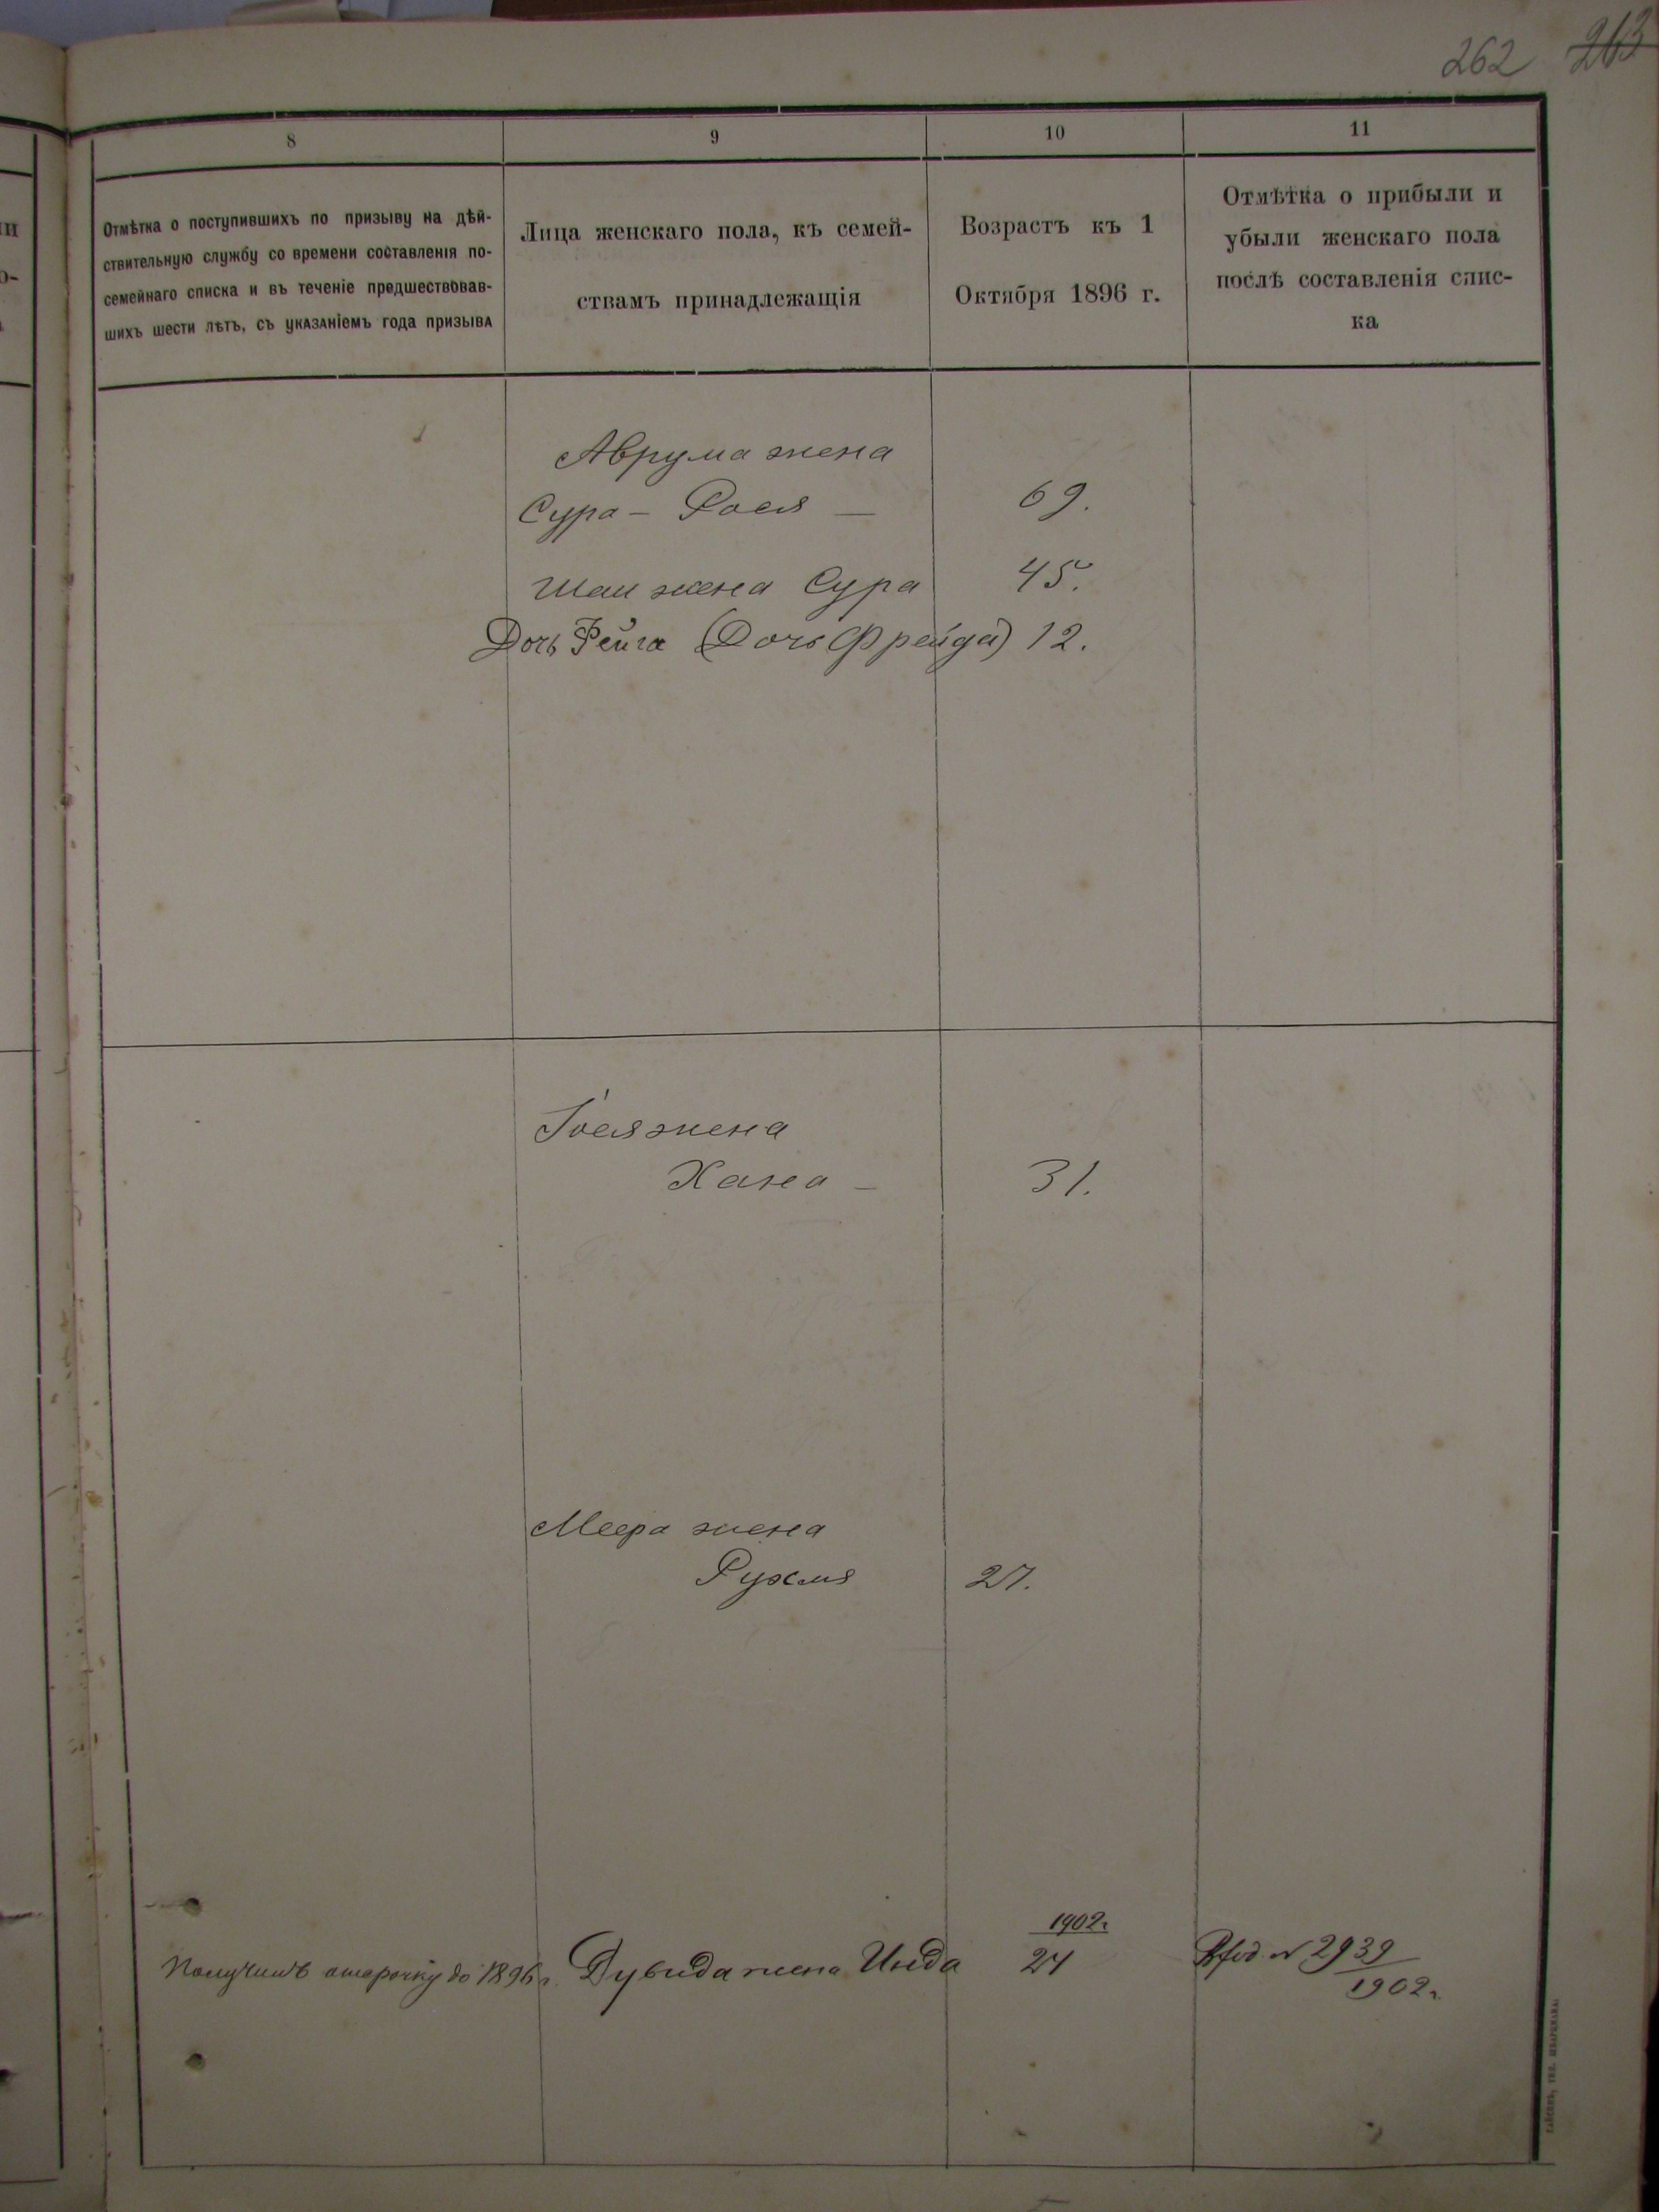 262 263
8
9
10
11
Отмѣтка о поступившихъ по призыву на дѣй-
ствительную службу со времени составленія по-
семейнаго списка и въ теченіе предшествовав-
шихъ шести лѣтъ, съ указаніемъ года призыва
Лица женскаго пола, къ семей-
ствамъ принадлежащія
Возрастъ къ 1
Октября 1896 г.
Отмѣтка о прибыли и
убыли женскаго пола
послѣ составленія спис-
ка
Аврума жена
Сура - Рося — 69.
Шаи жена Сура 45.
Дочь Рейга (Дочь Фрейда) 12.
Iося жена
Хана — 31.
Меера жена
Рухля 27.
1902г
Получилъ отсрочку до 1896г. Дувида жена Инда 24 № 2939
1902г.